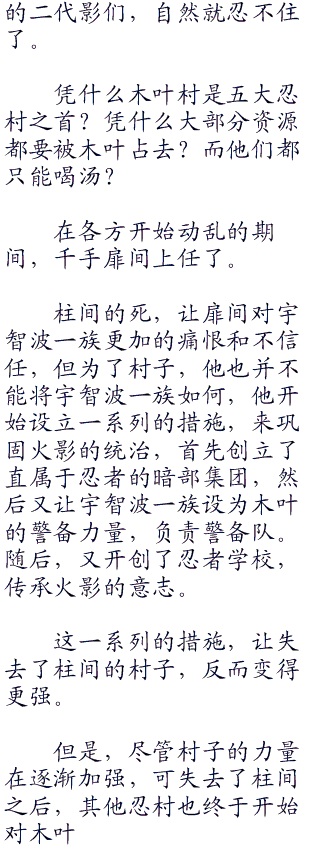 的二代影们，自然就忍不住
了。
凭什么木叶村是五大忍
村之首？凭什么大部分资源
都要被木叶占去？而他们都
只能喝汤？
在各方开始动乱的期
间，千手扉间上任了。
柱间的死，让扉间对宇
智波一族更加的痛恨和不信
任，但为了村子，他也并不
能将宇智波一族如何，他开
始设立一系列的措施，来巩
固火影的统治，首先创立了
直属于忍者的暗部集团，然
后又让宇智波一族设为木叶
的警备力量，负责警备队。
随后，又开创了忍者学校，
传承火影的意志。
这一系列的措施，让失
去了柱间的村子，反而变得
更强。
但是，尽管村子的力量
在逐渐加强，可失去了柱间
之后，其他忍村也终于开始
对木叶